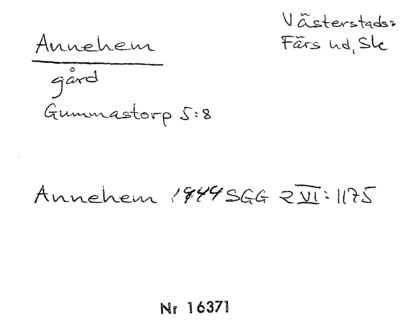 Annehem
Västerstads:
Färs hd, Sk
gård
Gummastorp 5:8
Annehem 1944 SGG 2 VI: 1175
Nr 16371